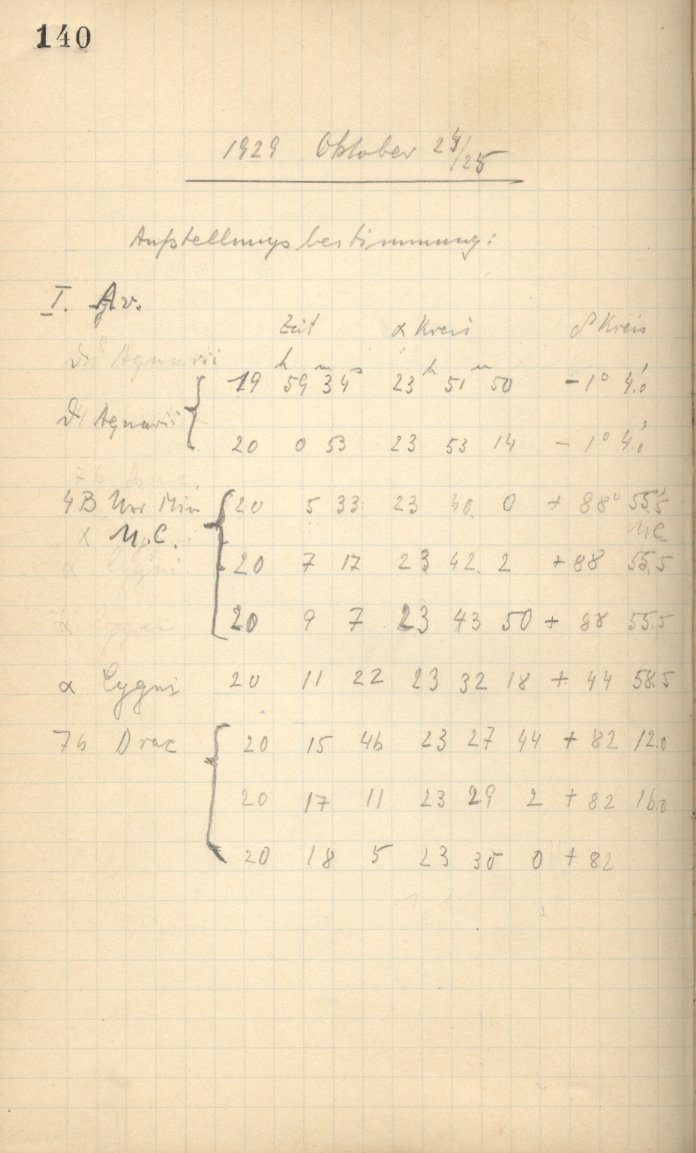 140
1929 Oktober 24/25
Aufstellungsbestimmung:
I. Av.
Zeit α Kreis δ Kreis
Aquarii
19h 59m 34s 23h 51m 50 - 1° 4.'0
Aquarii
20 0 53 23 53 14 - 1° 4.'0
4B Urs Min 20 5 33 23 40 0 + 88° 55.'5
U.C. U.C.
α Cygni 20 7 17 23 42 2 + 88 55.5
20 9 7 23 43 50 + 88 55.5
α Cygni 20 11 22 23 32 18 + 44 58.5
76 Drac 20 15 46 23 27 44 + 82 12.0
20 17 11 23 29 2 + 82 16.0
20 18 5 23 30 0 + 82